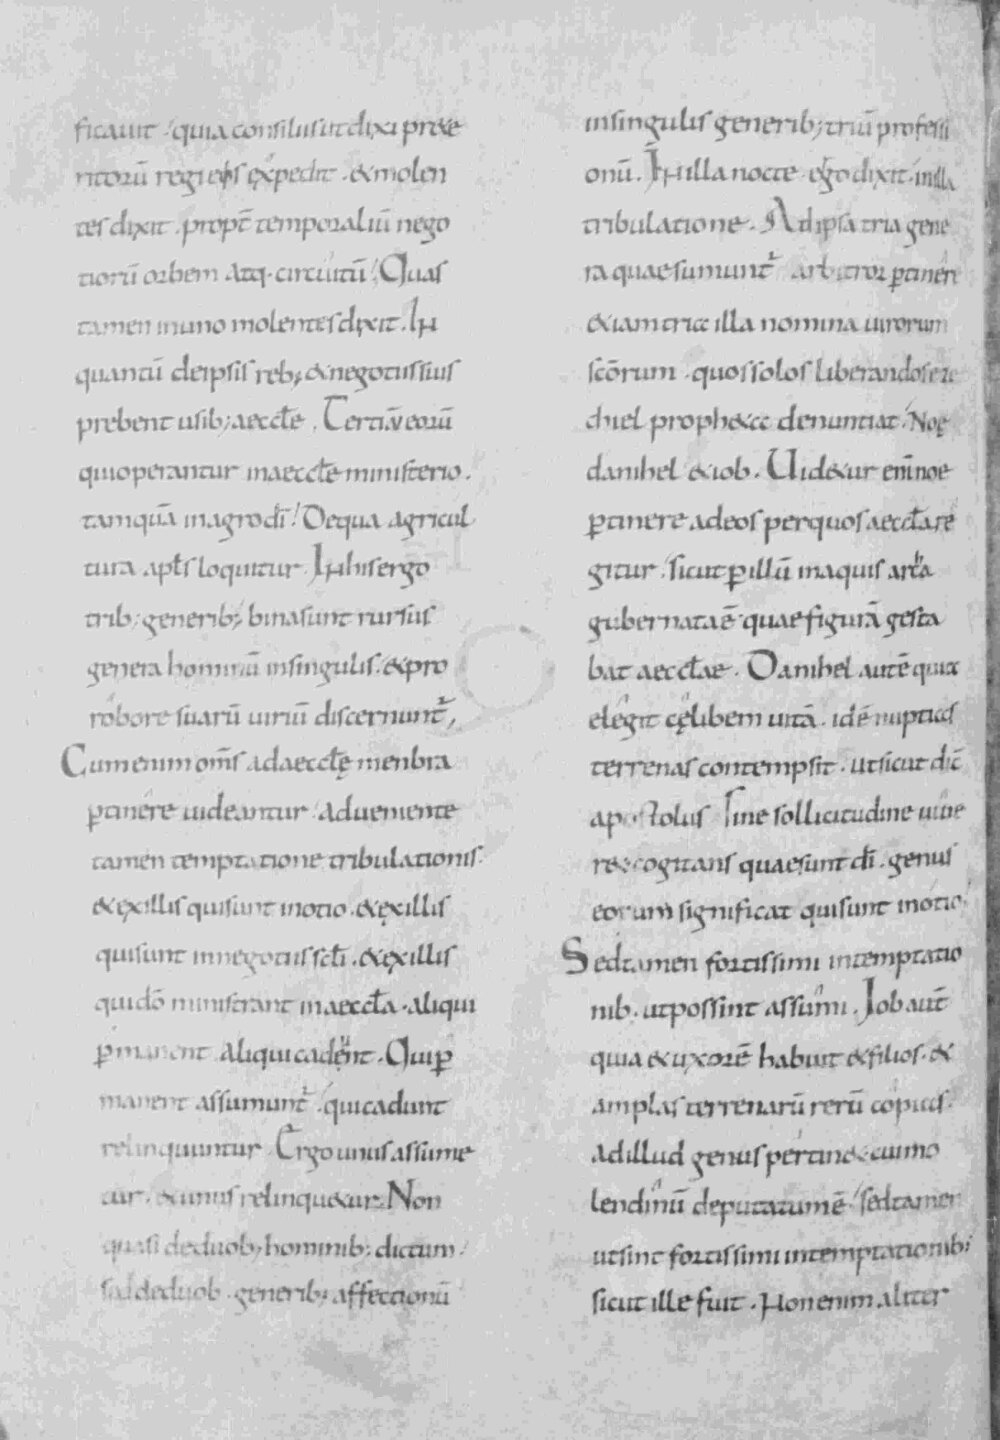 ficauit · quia consiliis ut dixi prae
ritorū regi eos expedit · & molen
tes dixit · propt̄ temporaliū nego
tiorū orbem atq· circuitū · Quas
tamen in uno molentes dixit · IN
quantū de ipsis reb; & negotiis suis
prebent usib; aeccłe · Tertiū eorū
qui operantur in aeccłe ministerio ·
tamquā in agro dī · De qua agricul
tura apłs loquitur · IN his ergo
trib; generib; bina sunt rursus
genera hominū in singulis · & pro
robore suarū uiriū discernunt̄
Cum enim om̄s ad aeccłę menbra
ꝑtinere uideantur · adueniente
tamen temptatione tribulationis
& ex illis qui sunt in otio · & ex illis
qui sunt in negotiis scłi · & ex illis
qui dō ministrant in aeccła · aliqui
ꝑmanent · aliqui cadent · Qui ꝑ
manent assumunt̄ · qui cadunt
relinquuntur · Ergo unus assume
tur · & unus relinquetur · Non
quasi de duob; hominib; dictum ·
sed de duob · generib; affectionū
in singulis generib; triū professi
onū · IN illa nocte ergo dixit · in illa
tribulatione · Ad ipsa tria gene
ra quae sumunt̄ arbitror ꝑtinere
& iam tria illa nomina uirorum
scōrum · quos solos liberandos eze
chiel propheta denuntiat · Noę
danihel & iob · Uidetur enī noe
ꝑtinere ad eos per quos aeccła re
gitur · sicut ꝑ illū in aquis arca
gubernata ē · quae figurā gesta
bat aeccłae · Danihel autē quia
elegit cęlibem uitā · id ē nuptias
terrenas contempsit · ut sicut dic̄
apostolus sine sollicitudine uiue
ret cogitans quae sunt dī · genus
eorum significat qui sunt in otio ·
Sed tamen fortissimi in temptatio
nib · ut possint assumi · Iob aut̄
quia & uxorē habuit & filios · &
amplas terrenarū rerū copias ·
ad illud genus pertinet cui mo
lendinū deputatum ē · sed tamen
ut sint fortissimi in temptationib;
sicut ille fuit · Non enim aliter